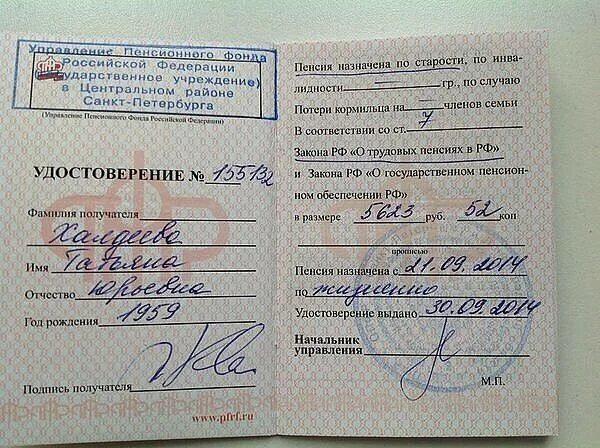 Управление Пенсионного Фонда
Российской Федерации
(Государственное учреждение)
в Центральном районе
Санкт-Петербурга
(Управление Пенсионного Фонда Российской Федерации)
УДОСТОВЕРЕНИЕ № 155132
Фамилия получателя
Халдеева
Имя Татьяна
Отчество Юрьевна
Год рождения 1959
Подпись получателя
www.pfrf.ru
Пенсия назначена по старости, по инва-
лидности гр., по случаю
Потери кормильца на членов семьи
В соответствии со ст. 7
Закона РФ «О трудовых пенсиях в РФ»
и Закона РФ «О государственном пенсион-
ном обеспечении РФ»
в размере 5623 руб. 52 коп
прописью
Пенсия назначена с 21.09.2014
по жизненно
Удостоверение выдано 30.09.2014
Начальник
управления
М.П.